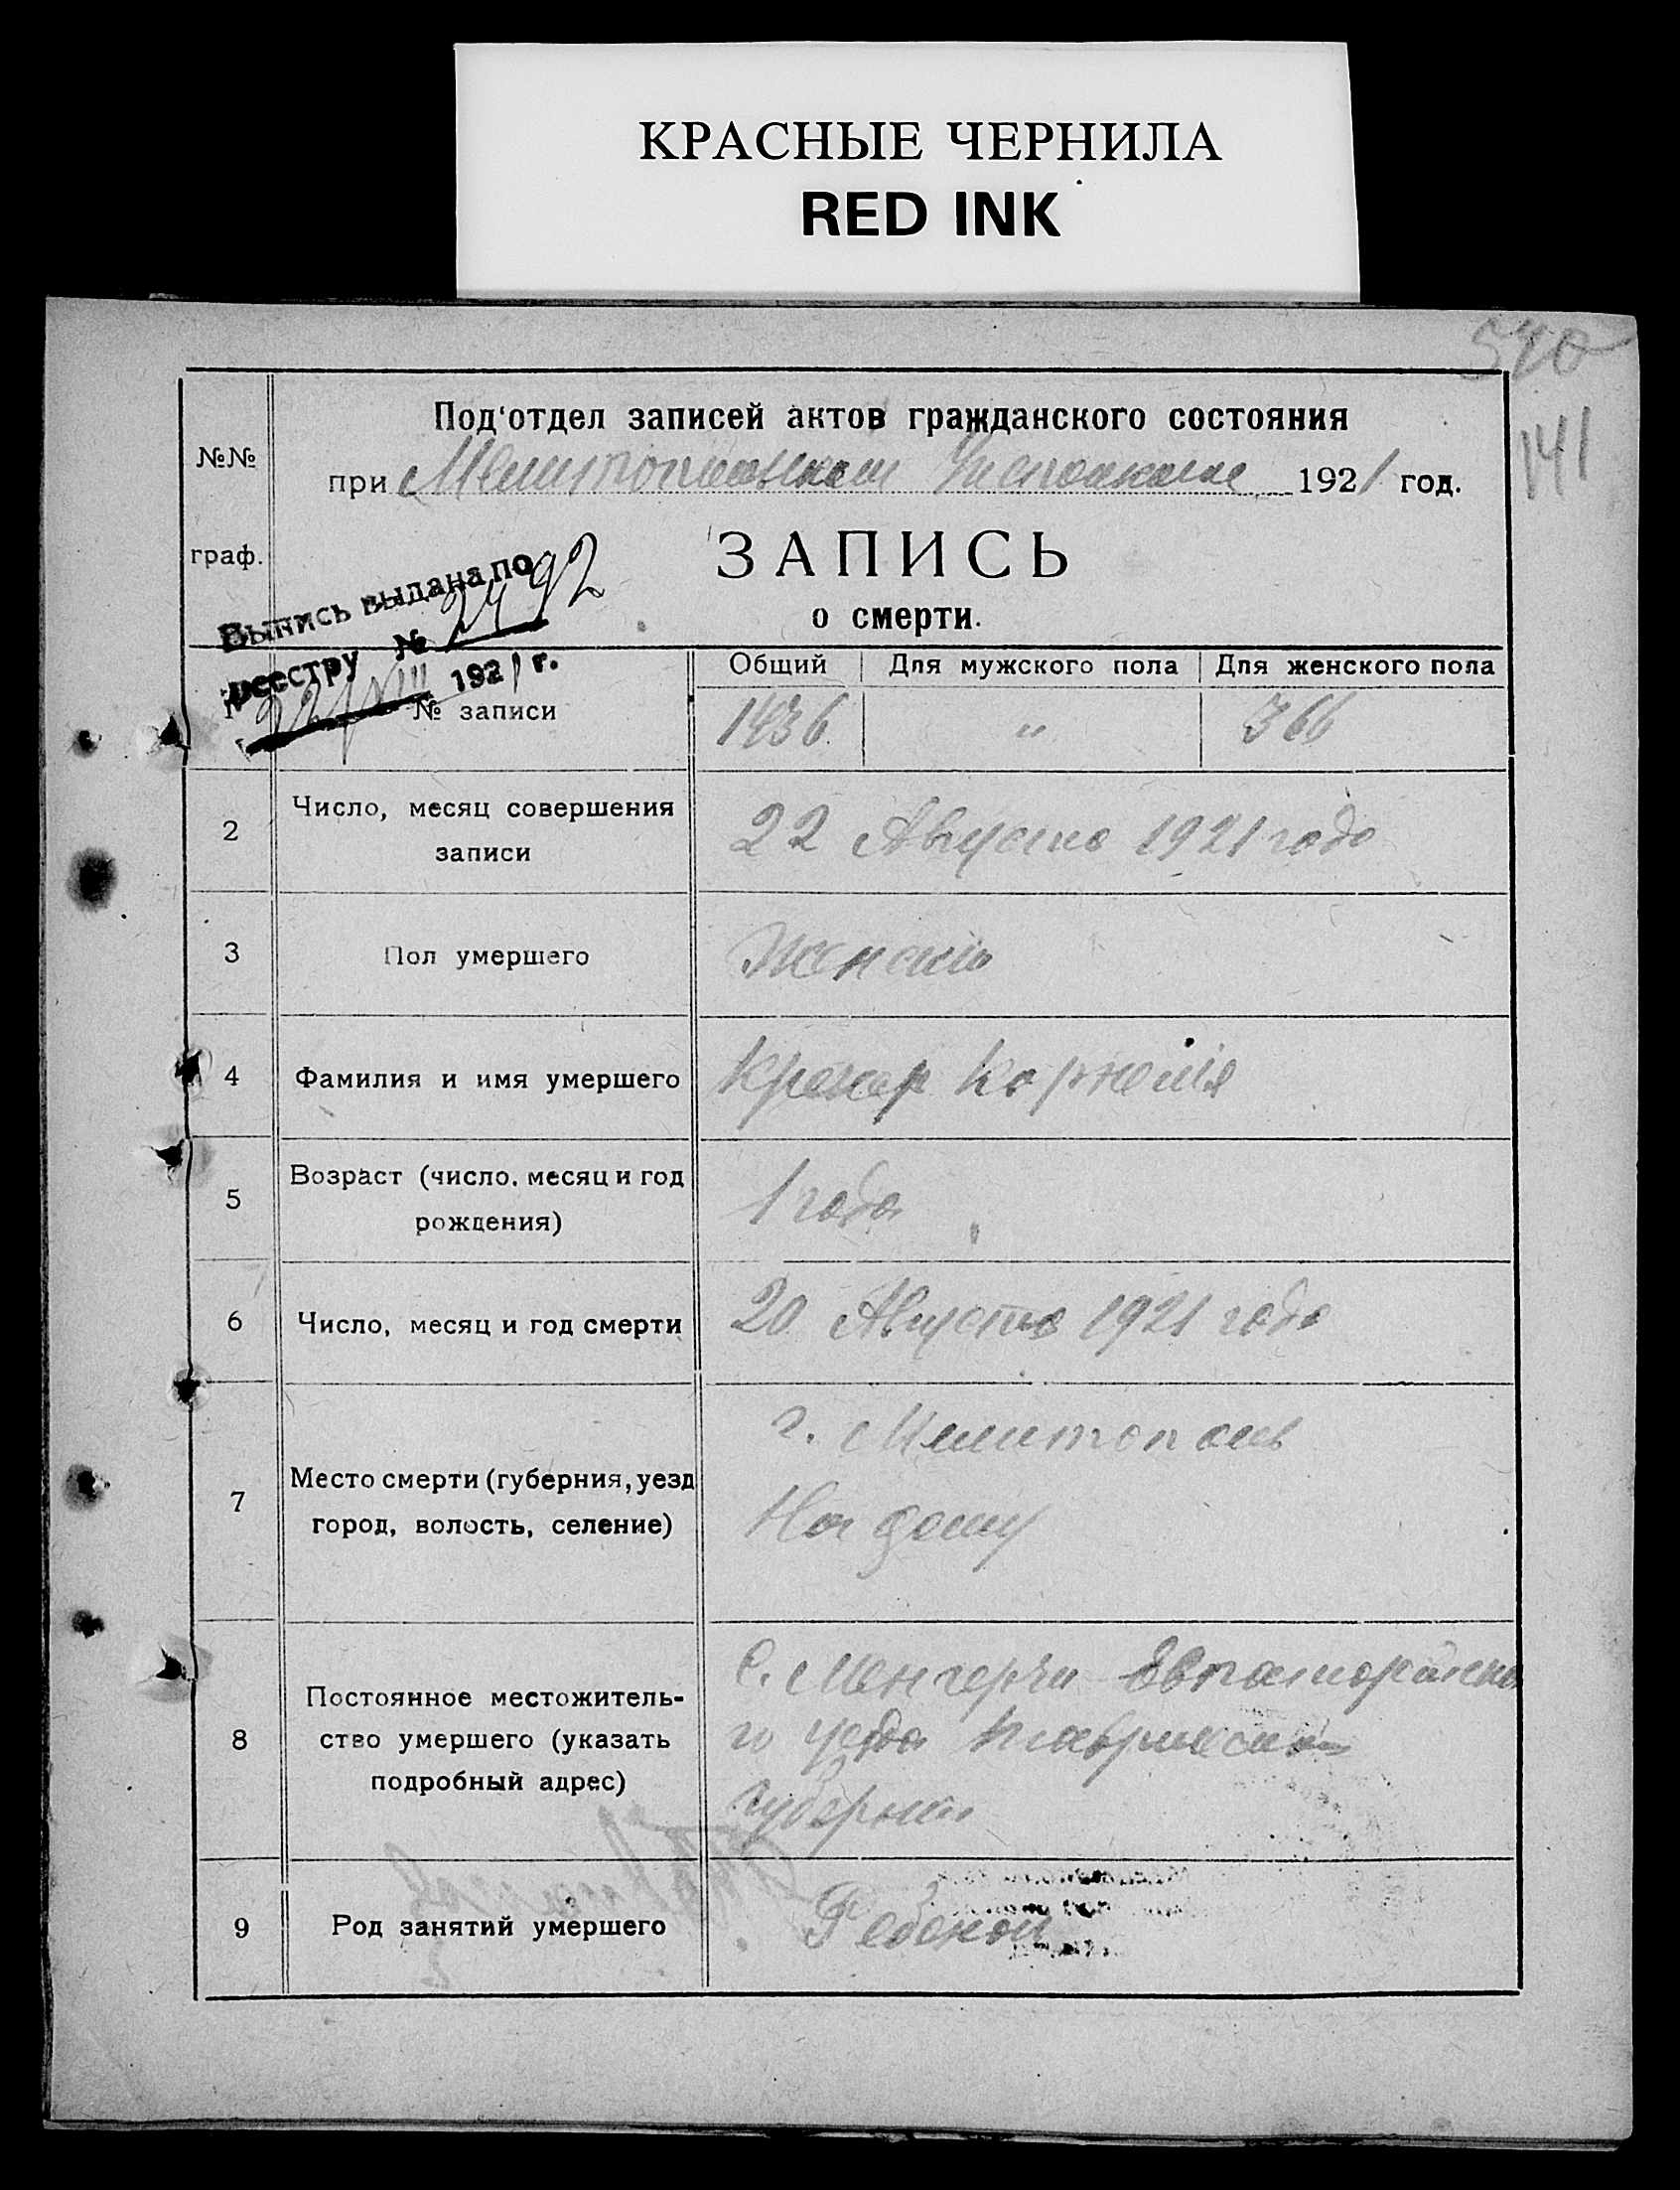 КРАСНЫЕ ЧЕРНИЛА
RED INK
540
141
Под'отдел записей актов гражданского состояния
№№
при Мелитопольском 1921 год.
граф.
ЗАПИСЬ
о смерти.
Выпись выдана по
реестру № 2492
22/VIII 1921 г.
Общий Для мужского пола Для женского пола
1 № записи 1436 " 366
2 Число, месяц совершения
записи
22 Августа 1921 года
3 Пол умершего Женский
4 Фамилия и имя умершего Крекер Корнелия
5 Возраст (число, месяц и год
рождения)
1 года
6 Число, месяц и год смерти 20 Августа 1921 года
7 Место смерти (губерния, уезд
город, волость, селение)
г. Мелитополь
На дому
8 Постоянное местожитель-
ство умершего (указать
подробный адрес)
с. Менгерчи Евпаторийско
го уезда Таврической
губернии
9 Род занятий умершего Ребенок